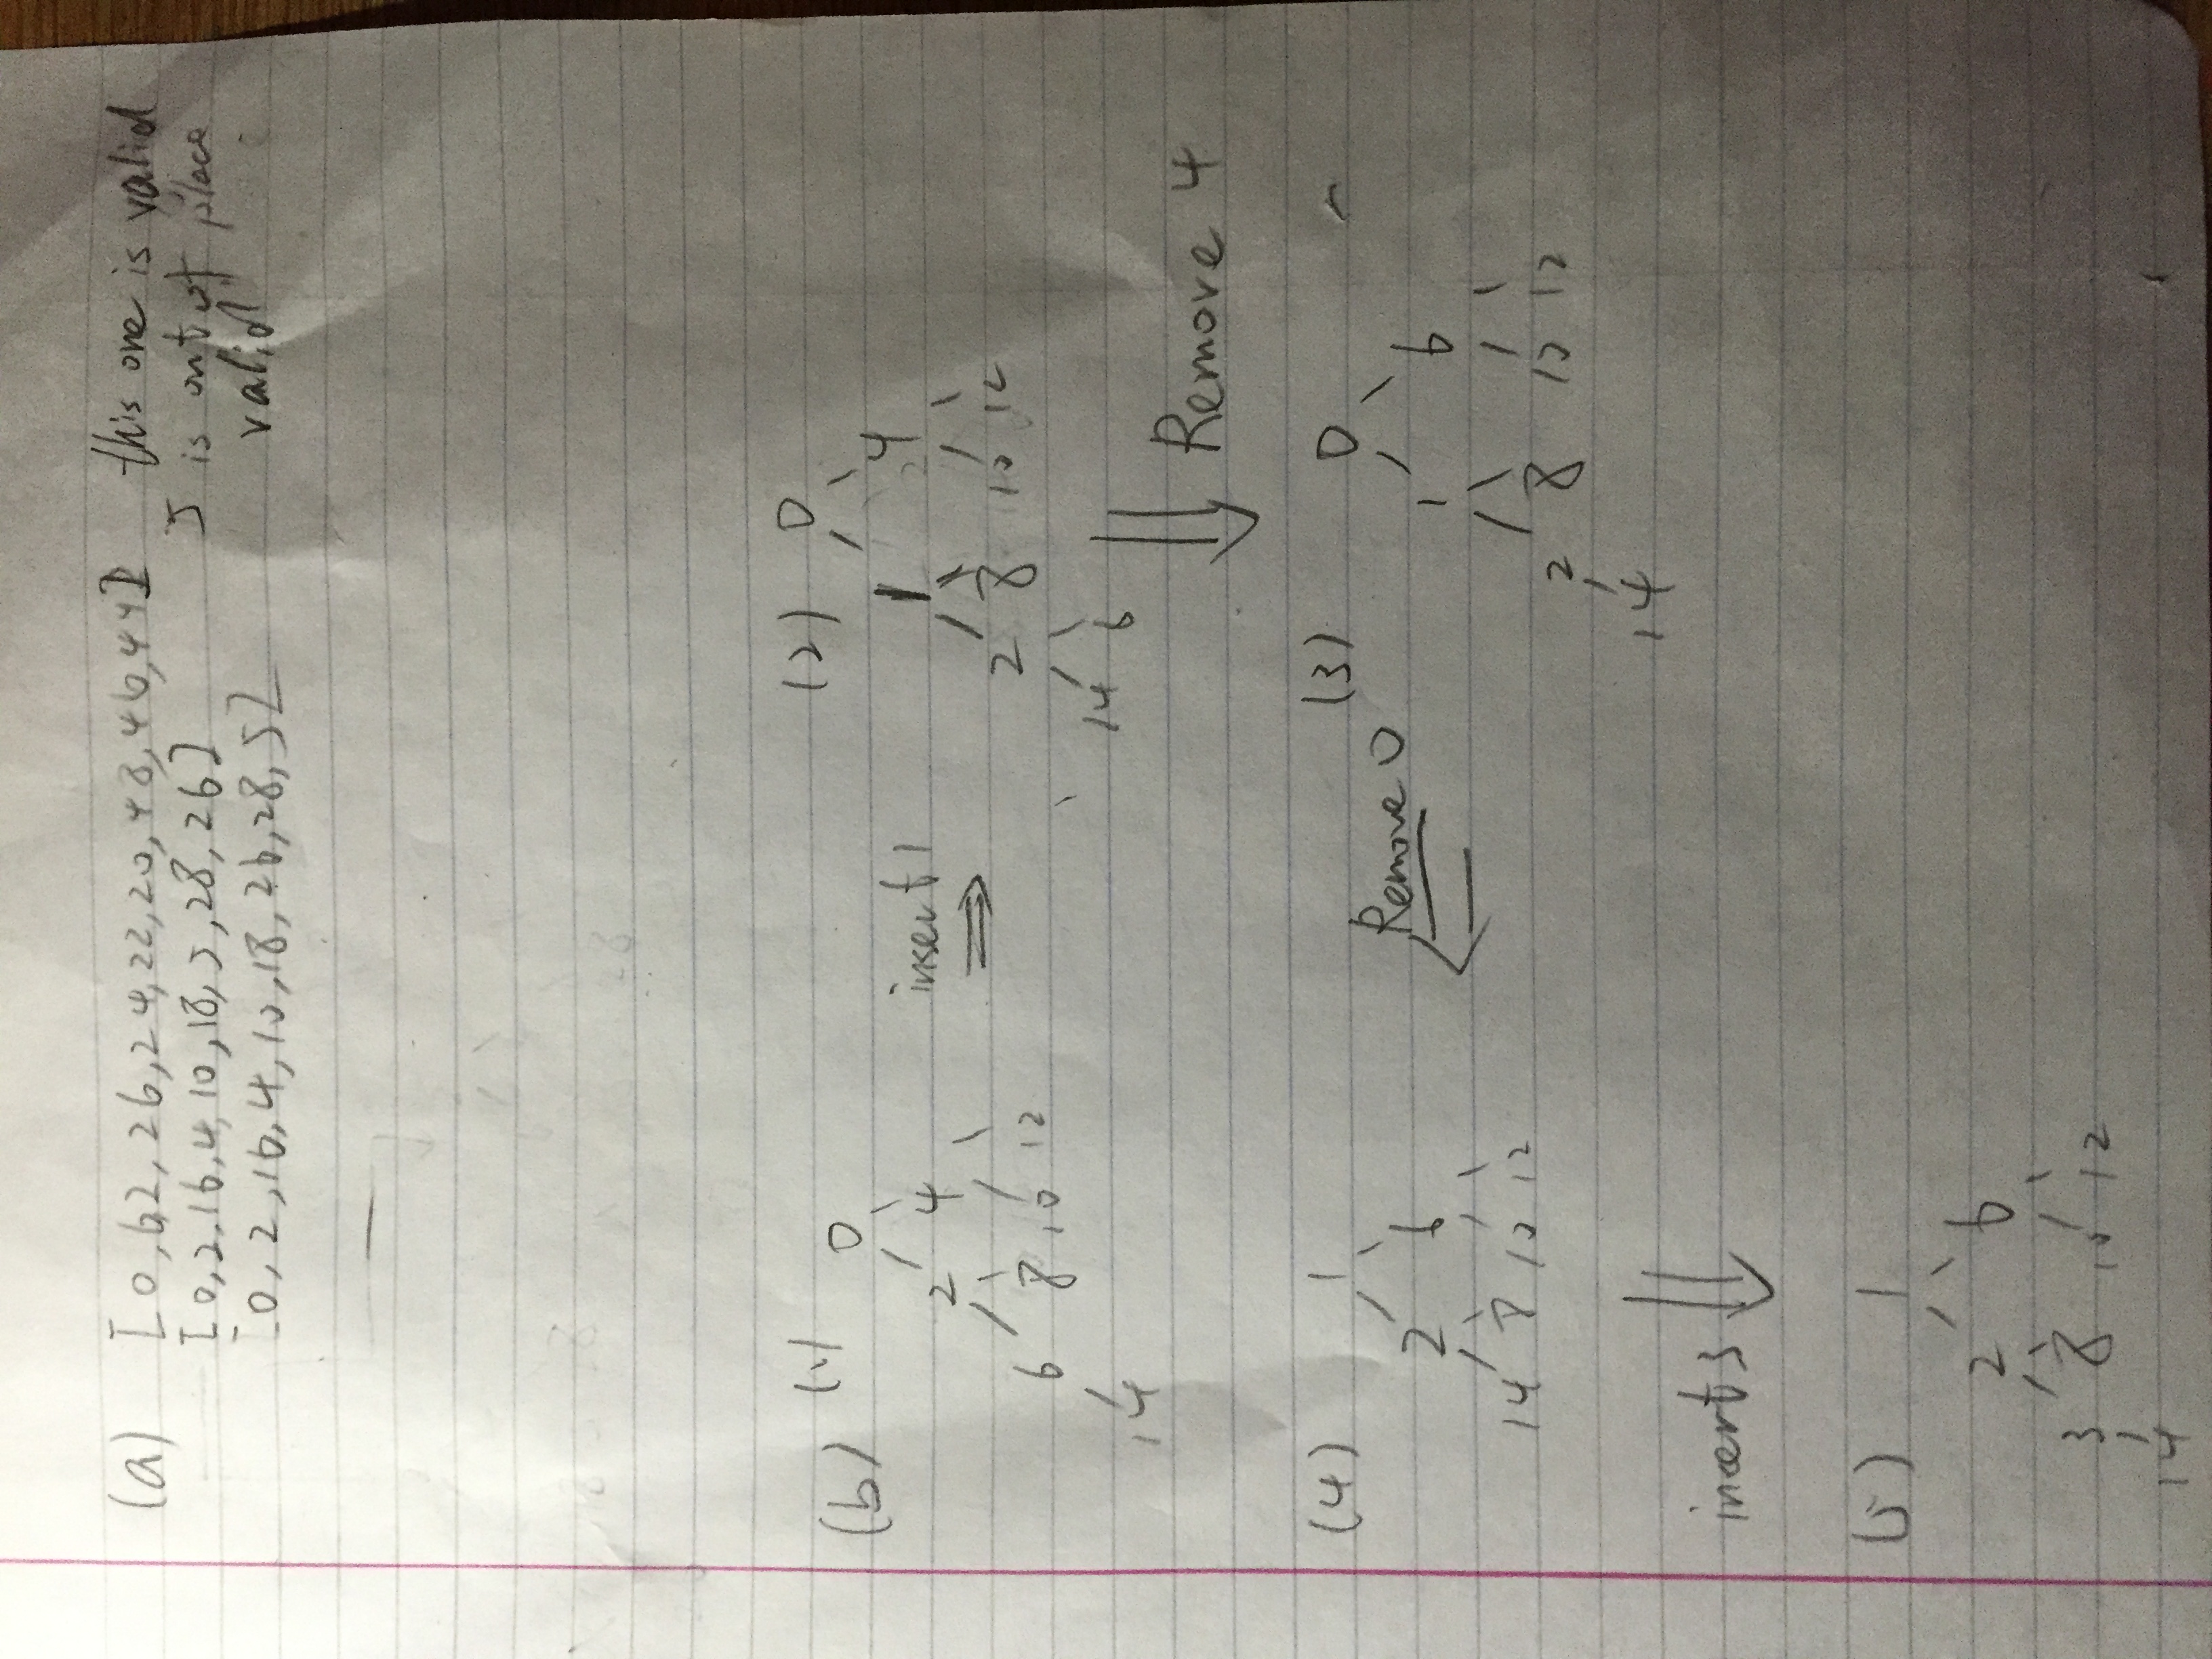 (a) [0,62,26,24,22,20,48,46,44] this one is valid
[0,2,16,4,10,18,5,28,26] 5 is out of place
[0,2,16,4,10,18,26,28,5] valid
(b) (1)
0
2 4
6 8 10 12
14
insert 1
(2) 0
1 4
2 8 10 12
14 6
Remove 4
(3) 0
1 6
2 8 10 12
14
Remove 0
(4) 1
2 6
14 8 10 12
insert 3
(5) 1
2 6
3 8 10 12
14